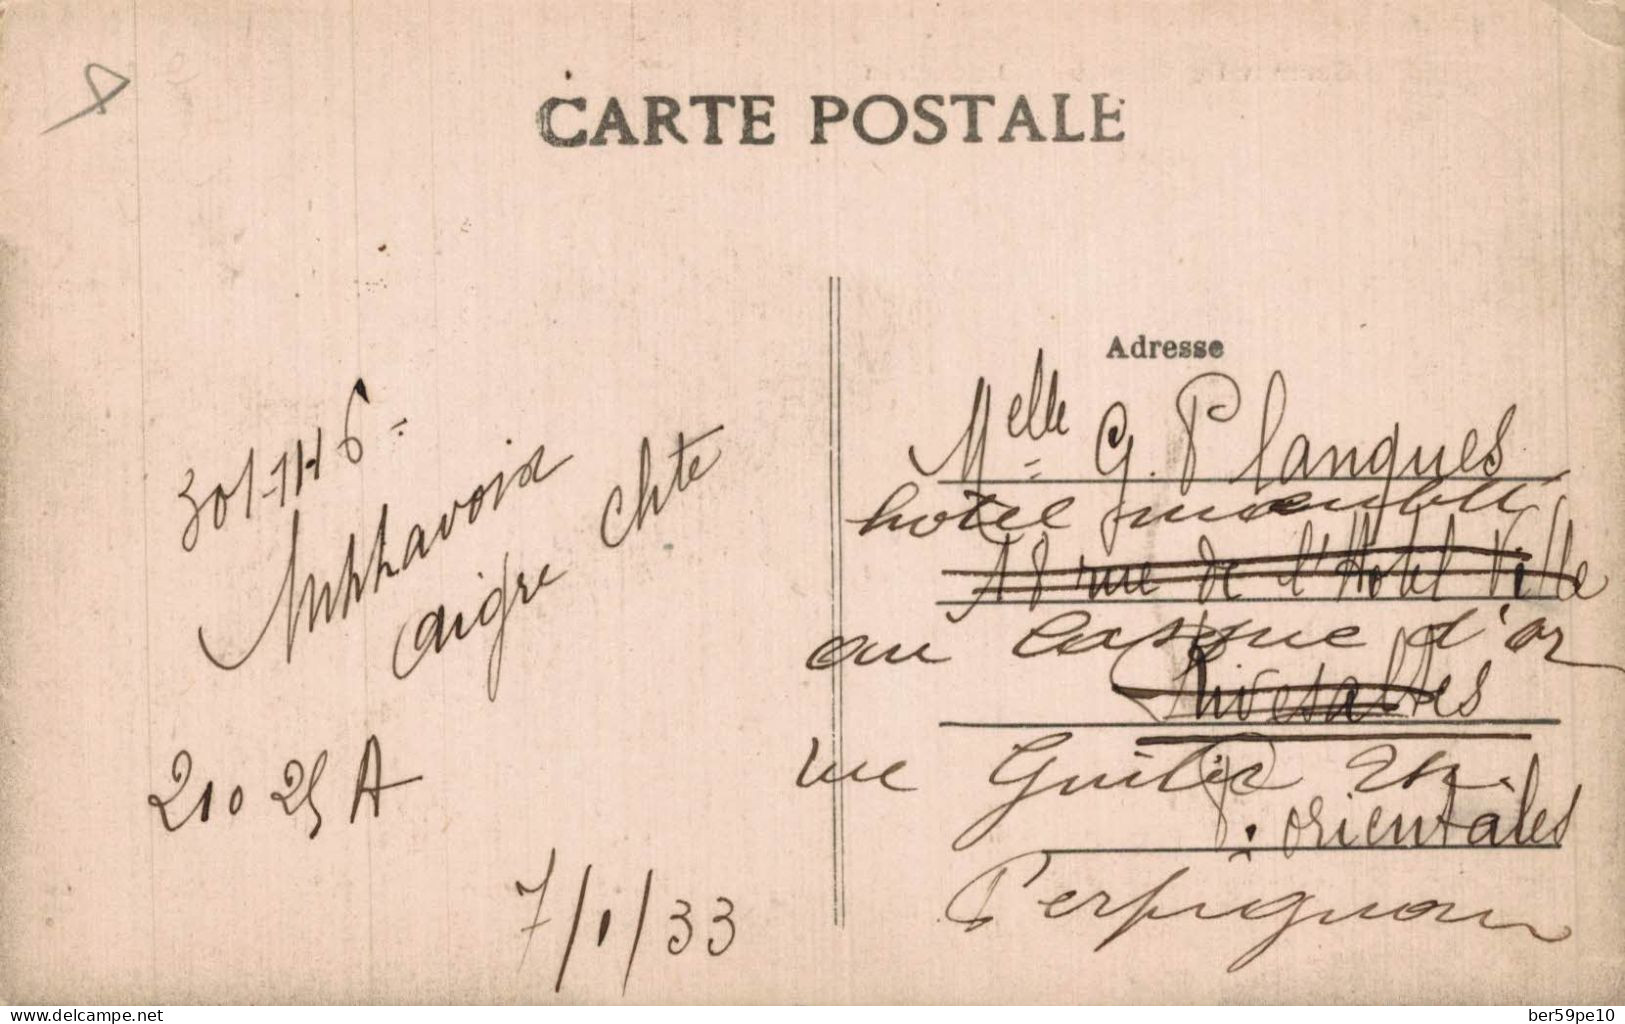 CARTE POSTALE
Adresse
301-1H6=
aigre chte
210 25 A
7/1/33
Melle G. Planques
hotel meublé
18 rue de l'Hotel Ville
au Casque d'or
Rivesaltes
rue
P. orientales
Perpignan
www.delcampe.net
ber59pe10